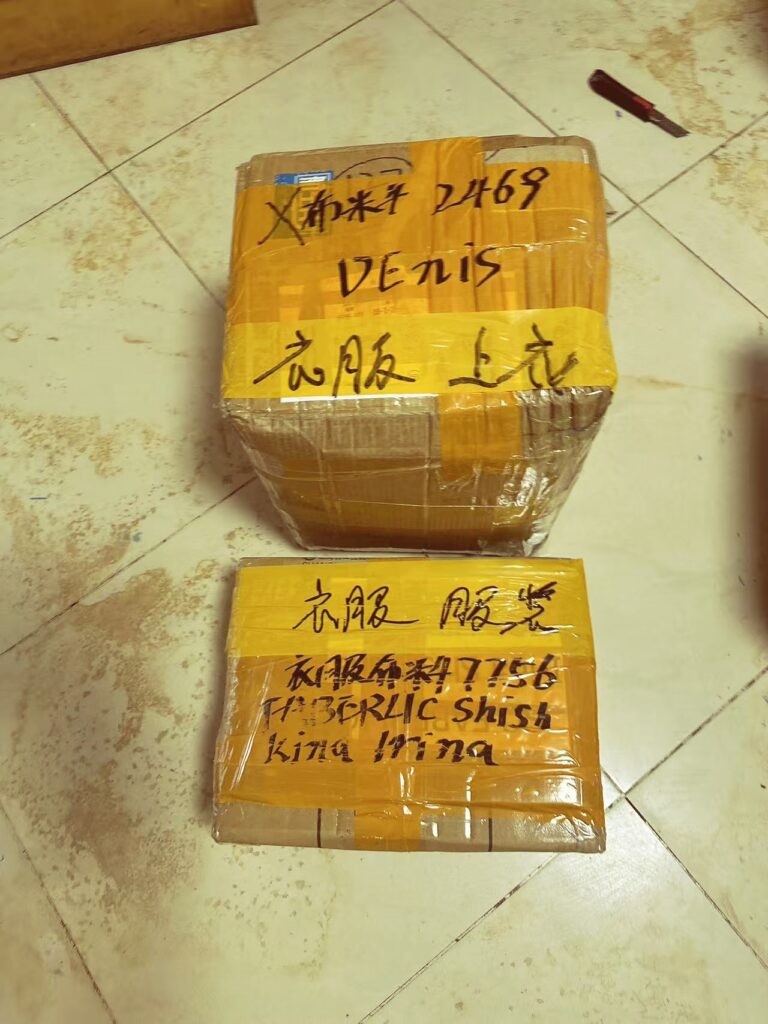 布料 2469
DEniS
衣服 上衣
衣服 服装
衣服布料 7756
FABERLIC Shish
kina Irina